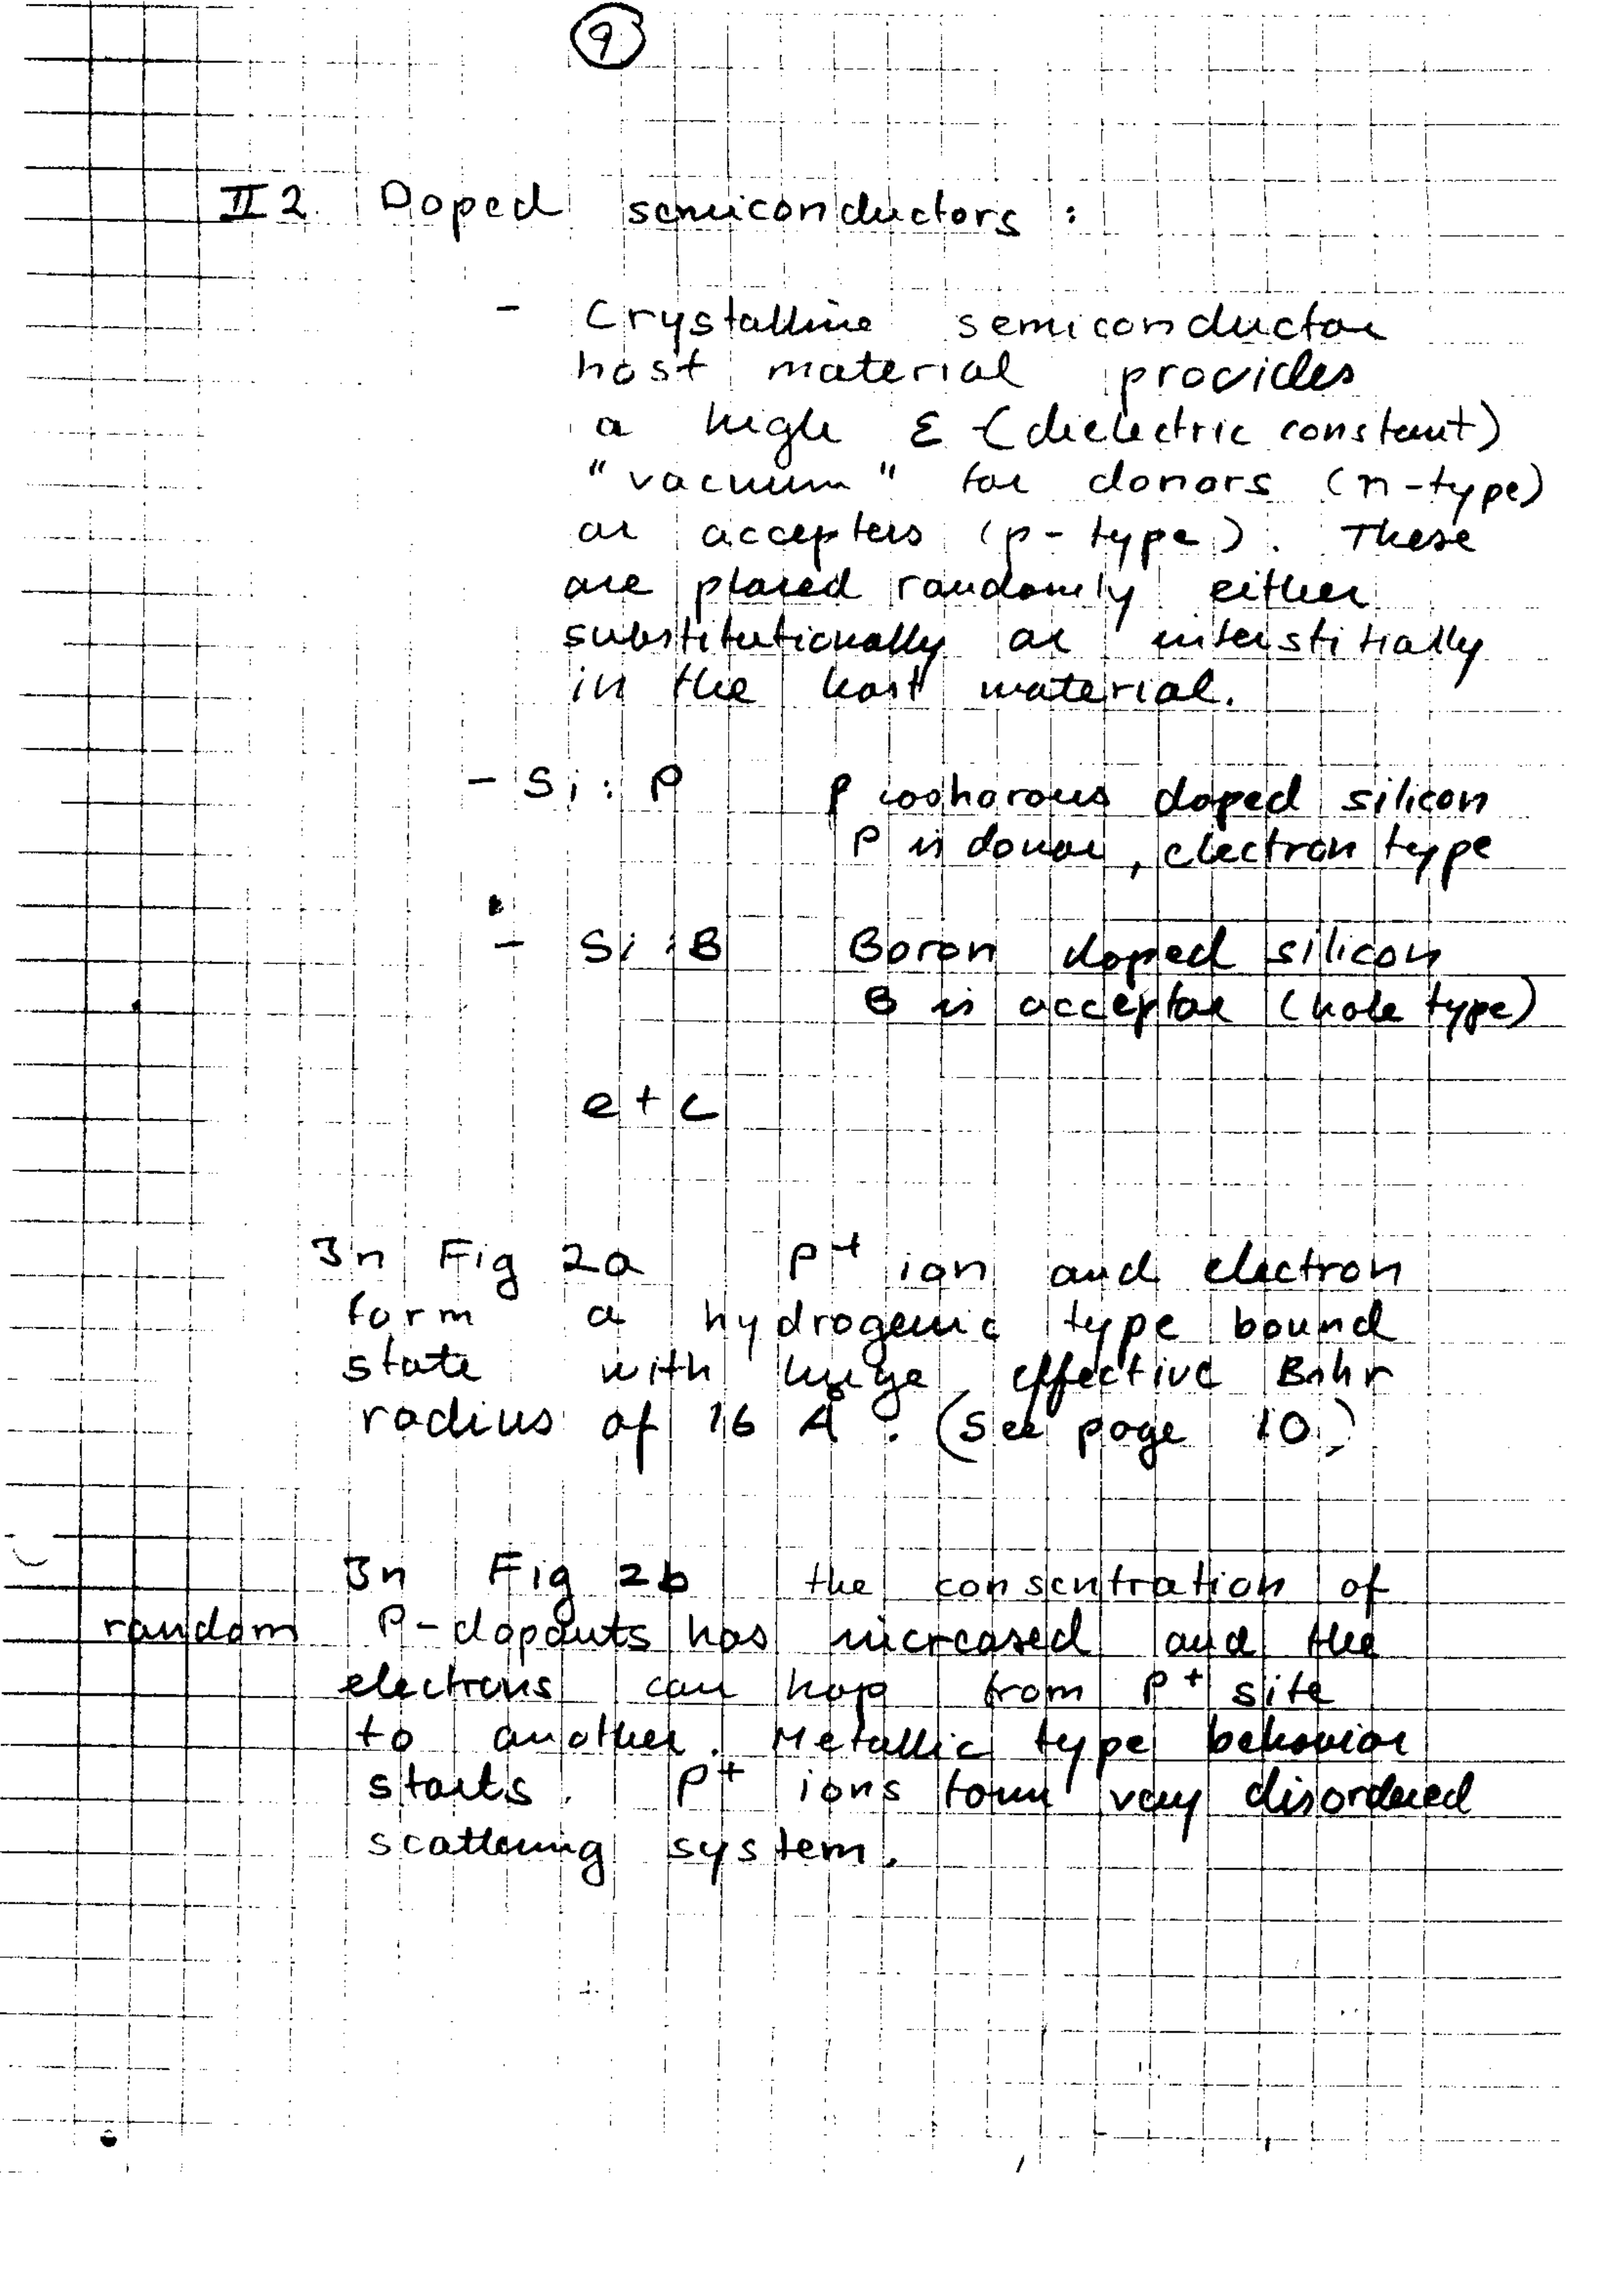 9
II 2. Doped semiconductors :
- Crystalline semiconductor
host material provides
a high ε (dielectric constant)
"vacuum" for donors (n-type)
or accepters (p-type). These
are placed randomly either
substitutionally or interstitially
in the host material.
- Si : P doped silicon
P is donor, electron type
- Si : B Boron doped silicon
B is acceptor (hole type)
etc
In Fig 2a P+ ion and electron
form a hydrogenic type bound
state with huge effective Bohr
radius of 16 Å. (See page 10)
In Fig 2b the consentration of
random P-dopants has increased and the
electrons can hop from P+ site
to another. Metallic type behavior
starts. P+ ions form very disordered
scattering system.